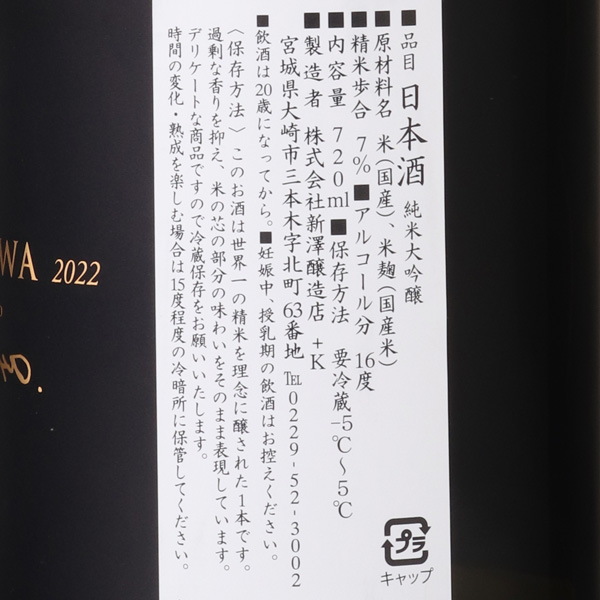 ■品目 日本酒 純米大吟醸
■原材料名 米(国産)、米麹(国産米)
■精米歩合 7% ■アルコール分 16度
■内容量 720ml ■保存方法 要冷蔵-5℃~5℃
■製造者 株式会社新澤醸造店 +K
宮城県大崎市三本木字北町63番地 ℡0229-52-3002
■飲酒は20歳になってから。■妊娠中、授乳期の飲酒はお控えください。
〈保存方法〉このお酒は世界一の精米を理念に醸された1本です。
過剰な香りを抑え、米の芯の部分の味わいをそのまま表現しています。
デリケートな商品ですので冷蔵保存をお願いいたします。
時間の変化・熟成を楽しむ場合は15度程度の冷暗所に保管してください。
プラ
キャップ
WA 2022